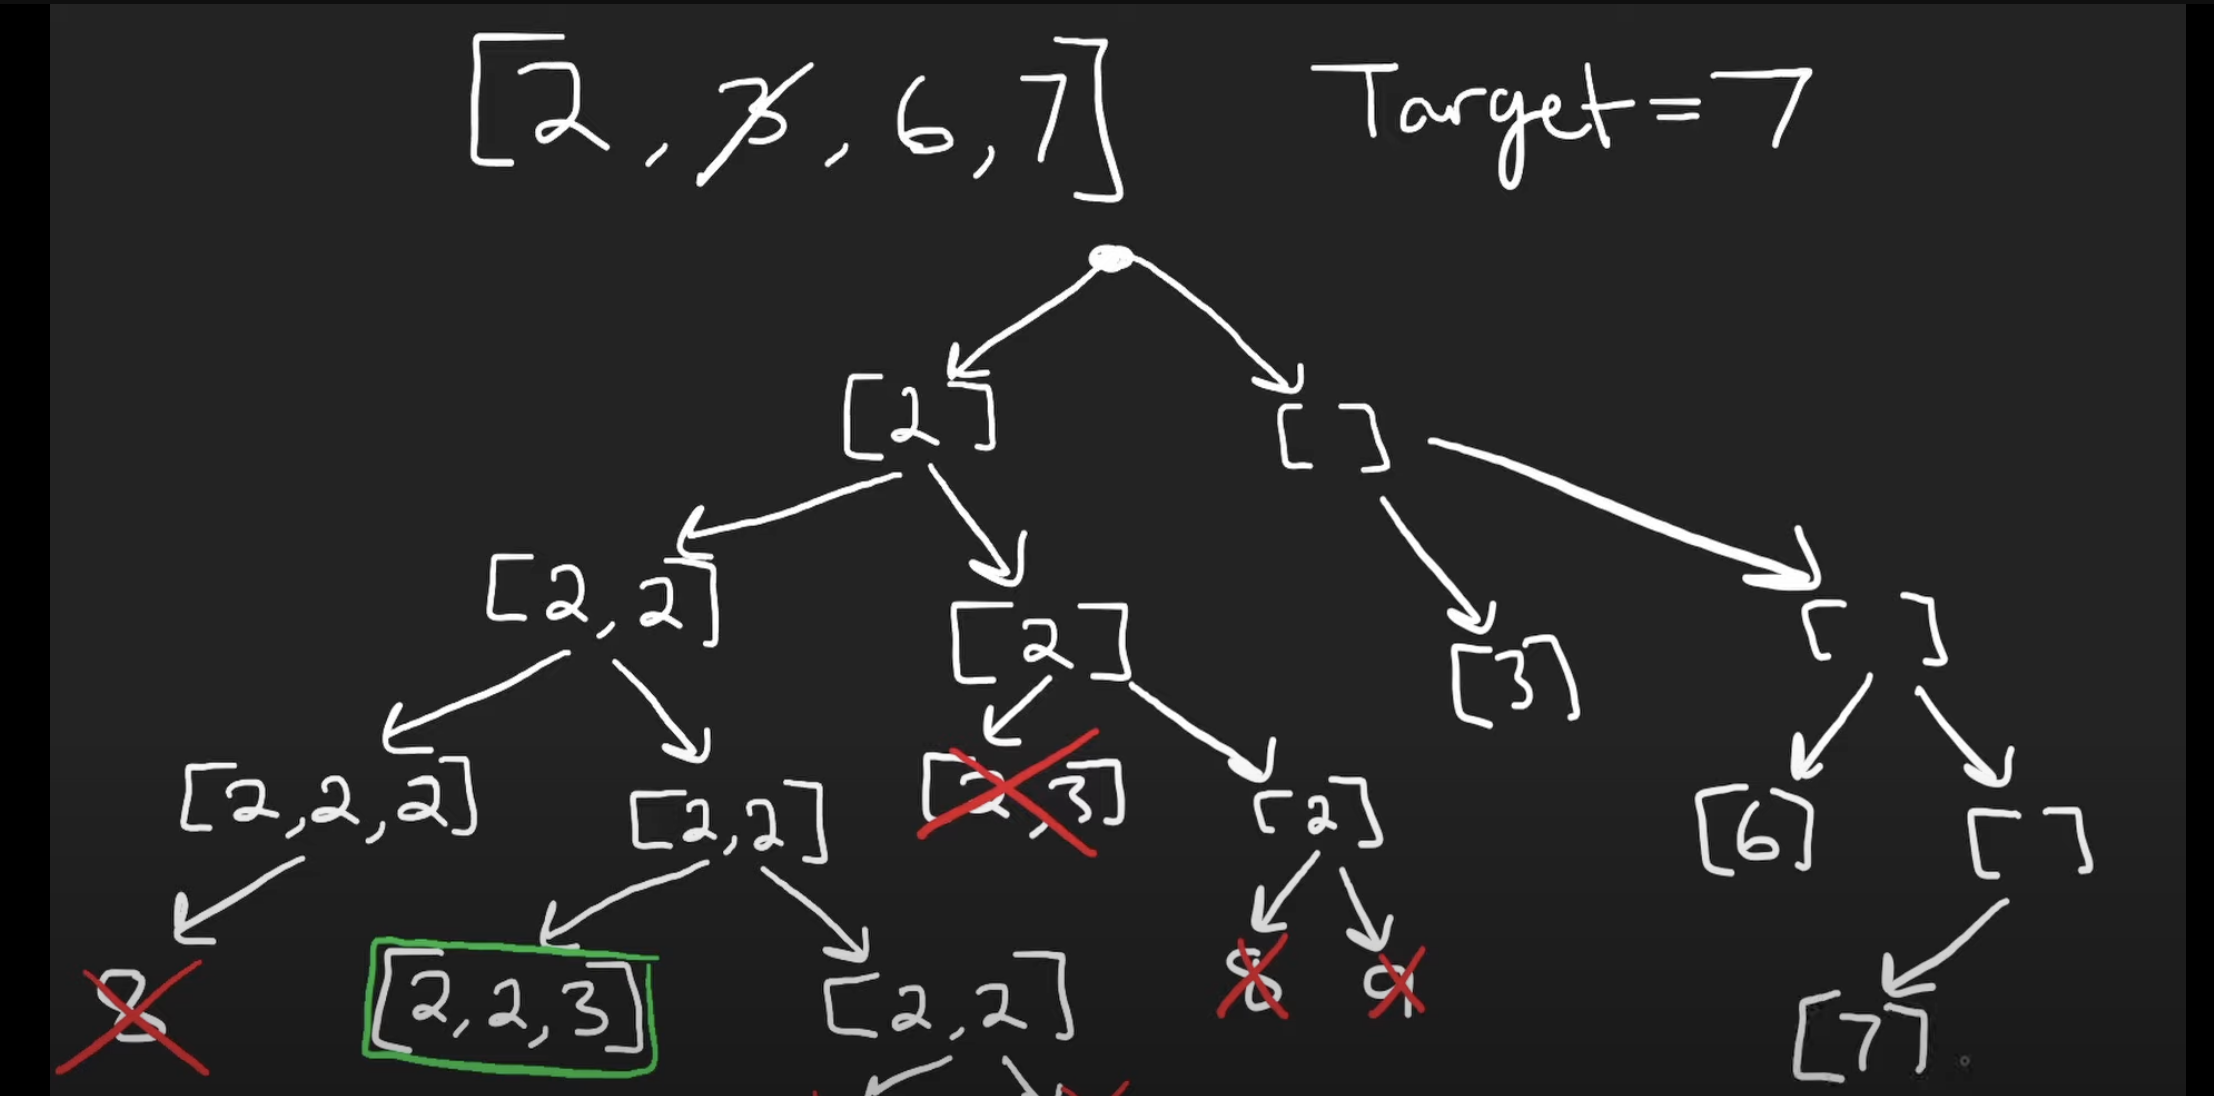 [2, 3, 6, 7] Target=7
[2] []
[2,2] [2] [3] []
[2,2,2] [2,2] [2,3] [2] [6] []
8 [2,2,3] [2,2] 8 9 [7]